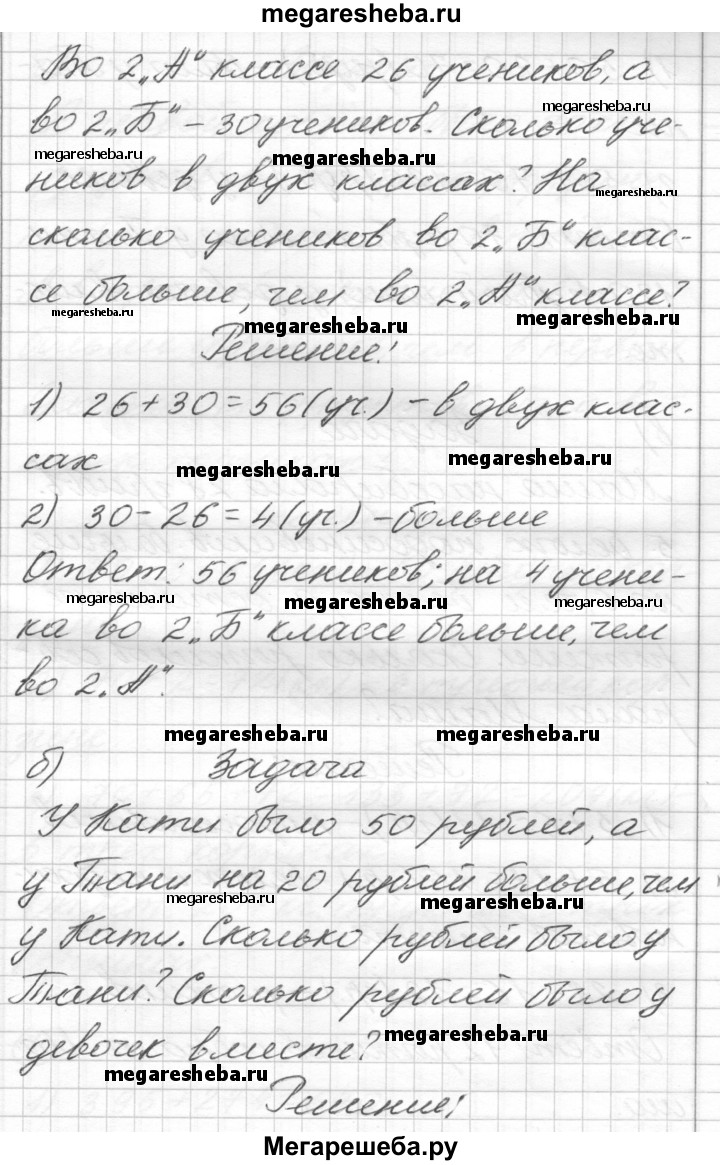 megaresheba.ru
Во 2„А“ классе 26 учеников, а
megaresheba.ru
во 2„Б“ – 30 учеников. Сколько уче-
megaresheba.ru megaresheba.ru
ников в двух классах? На
megaresheba.ru
сколько учеников во 2„Б“ клас-
се больше, чем во 2„А“ классе?
megaresheba.ru megaresheba.ru megaresheba.ru
Решение:
1) 26+30=56(уч.) – в двух клас-
сах
megaresheba.ru megaresheba.ru
2) 30–26=4(уч.) – больше
Ответ: 56 учеников; на 4 учени-
megaresheba.ru megaresheba.ru megaresheba.ru
ка во 2„Б“ классе больше, чем
во 2„А“.
megaresheba.ru
б) Задача
У Кати было 50 рублей, а
у Тани на 20 рублей больше, чем
megaresheba.ru megaresheba.ru
у Кати. Сколько рублей было у
Тани? Сколько рублей было у
девочек вместе?
megaresheba.ru
megaresheba.ru
Решение:
Мегарешеба.ру